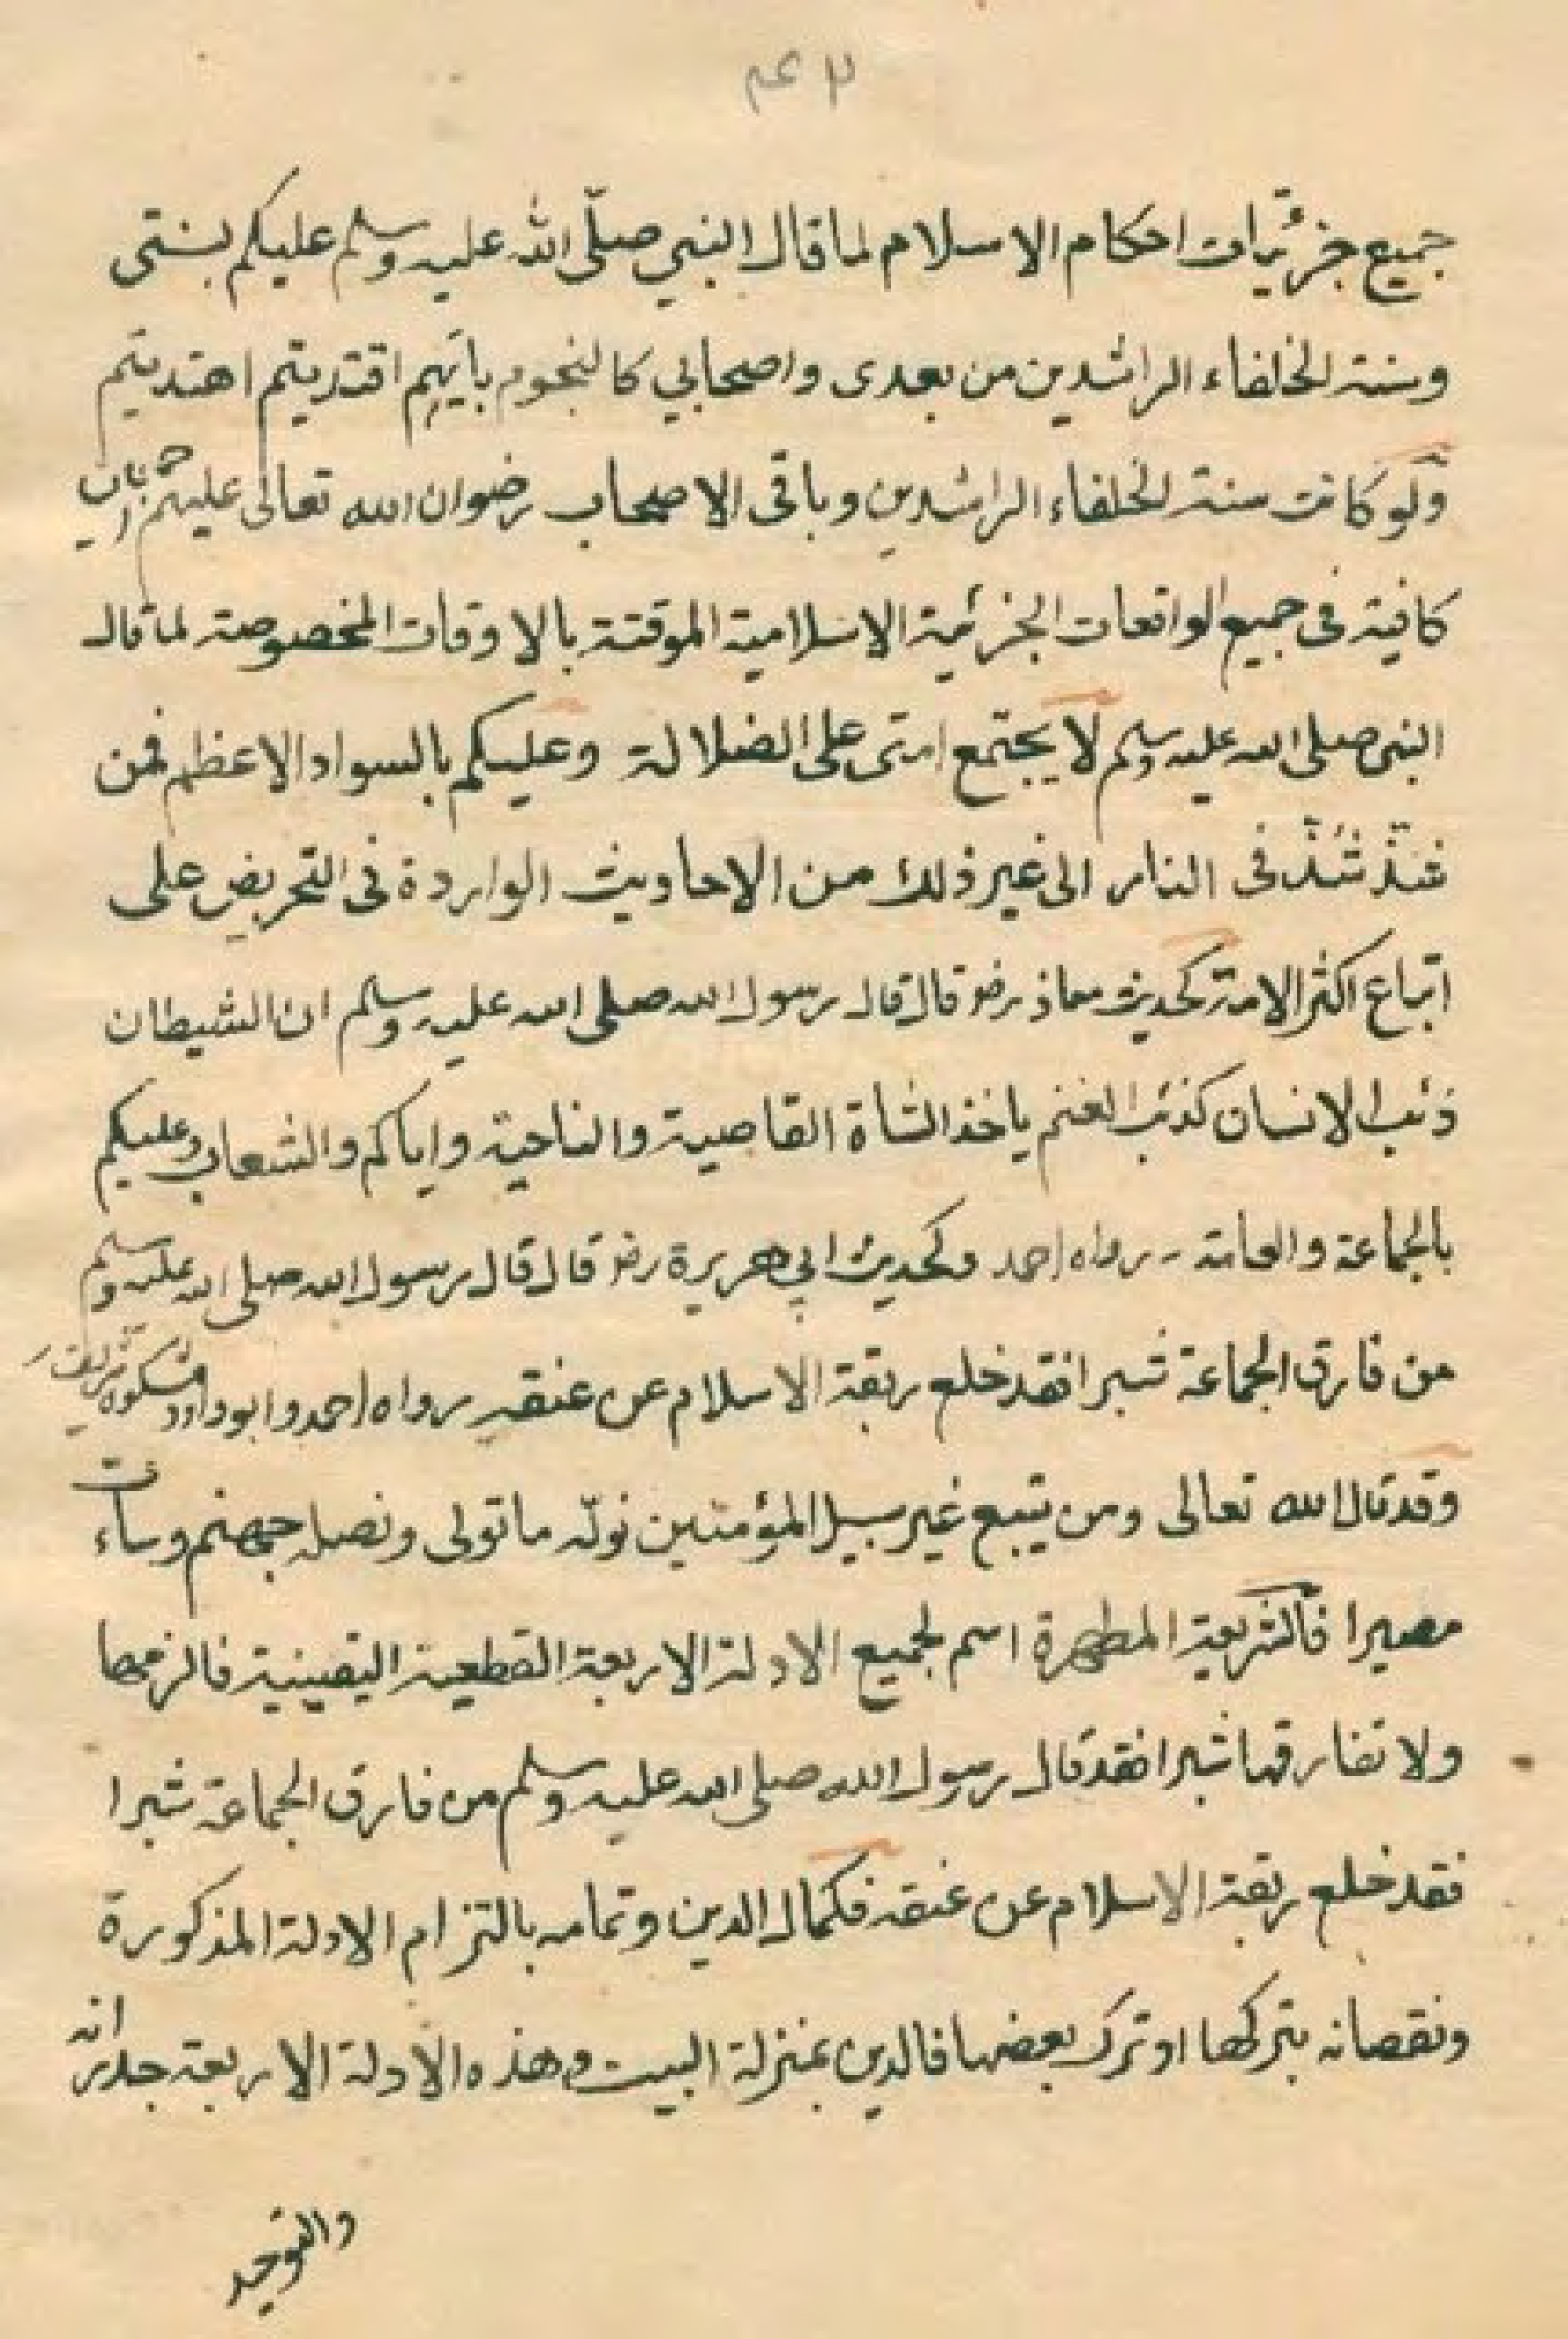 جميع جزئيات احكام الاسلام لما قال النبي صلّى الله عليه وسلم عليكم بسنتى
وسنة الخلفاء الراشدين من بعدى واصحابي كالنجوم بايهم اقتديتم اهتديتم
ولو كانت سنة الخلفاء الراشدين وباقى الاصحاب رضوان الله تعالى عليهم
كافية فى جميع الواقعات الجزئية الاسلامية الموقتة بالاوقات المخصوصة لما قال
النبى صلى الله عليه وسلم لا يجتمع امتى على الضلالة وعليكم بالسواد الاعظم فمن
شذّ شذّ فى النار الى غير ذلك من الاحاديث الواردة فى التحريض على
اتباع اكثر الامة كحديث معاذ رضـ قال قال رسول الله صلى الله عليه وسلم ان الشيطان
ذئب الانسان كذئب الغنم ياخذ الشاة القاصية والناحية واياكم والشعاب وعليكم
بالجماعة والعامة - رواه احمد وكحديث ابي هريرة رضـ قال قال رسول الله صلى الله عليه وسلم
من فارق الجماعة شبرا فقد خلع ربقة الاسلام عن عنقه رواه احمد وابوداود مشكوة شريف
وقد قال الله تعالى ومن يتبع غير سبيل المؤمنين نولّه ما تولى ونصله جهنم وساءت
مصيرا فالشريعة المطهرة اسم لجميع الادلة الاربعة القطعية اليقينية فالزمها
ولا تفارقها شبرا فقد قال رسول الله صلى الله عليه وسلم من فارق الجماعة شبرا
فقد خلع ربقة الاسلام عن عنقه فكمال الدين وتمامه بالتزام الادلة المذكورة
ونقصانه بتركها او ترك بعضها فالدين بمنزلة البيت وهذه الادلة الاربعة جدرانه
والتوحيد